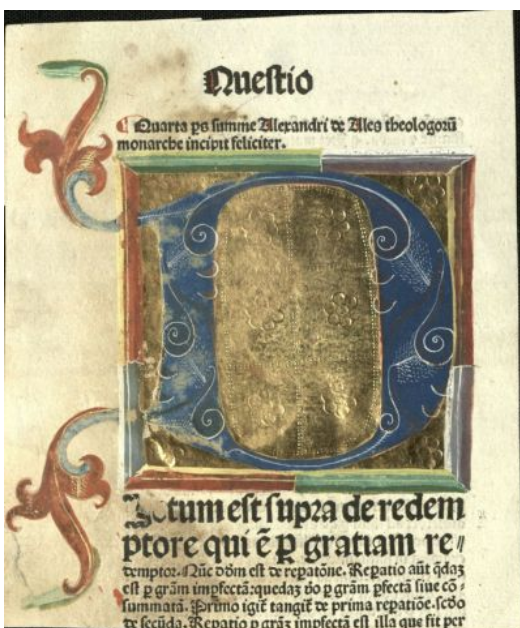 Questio
Quarta ps summe Alexandri de Ales theologorū
monarche incipit feliciter.
D
ictum est supra de redem
ptore qui ē ꝑ gratiam re〃
demptor. Nūc dōm est de repatōne. Repatio aūt q̄daȝ
est ꝑ grām imꝑfectā: quedaȝ v̄o ꝑ grām ꝑfectā siue cō-
summatā. Primo igit̄ tangit̄ de prima repatiōe. scḋo
de secūda. Repatio ꝑ grāȝ imꝑfectā est illa que fit per